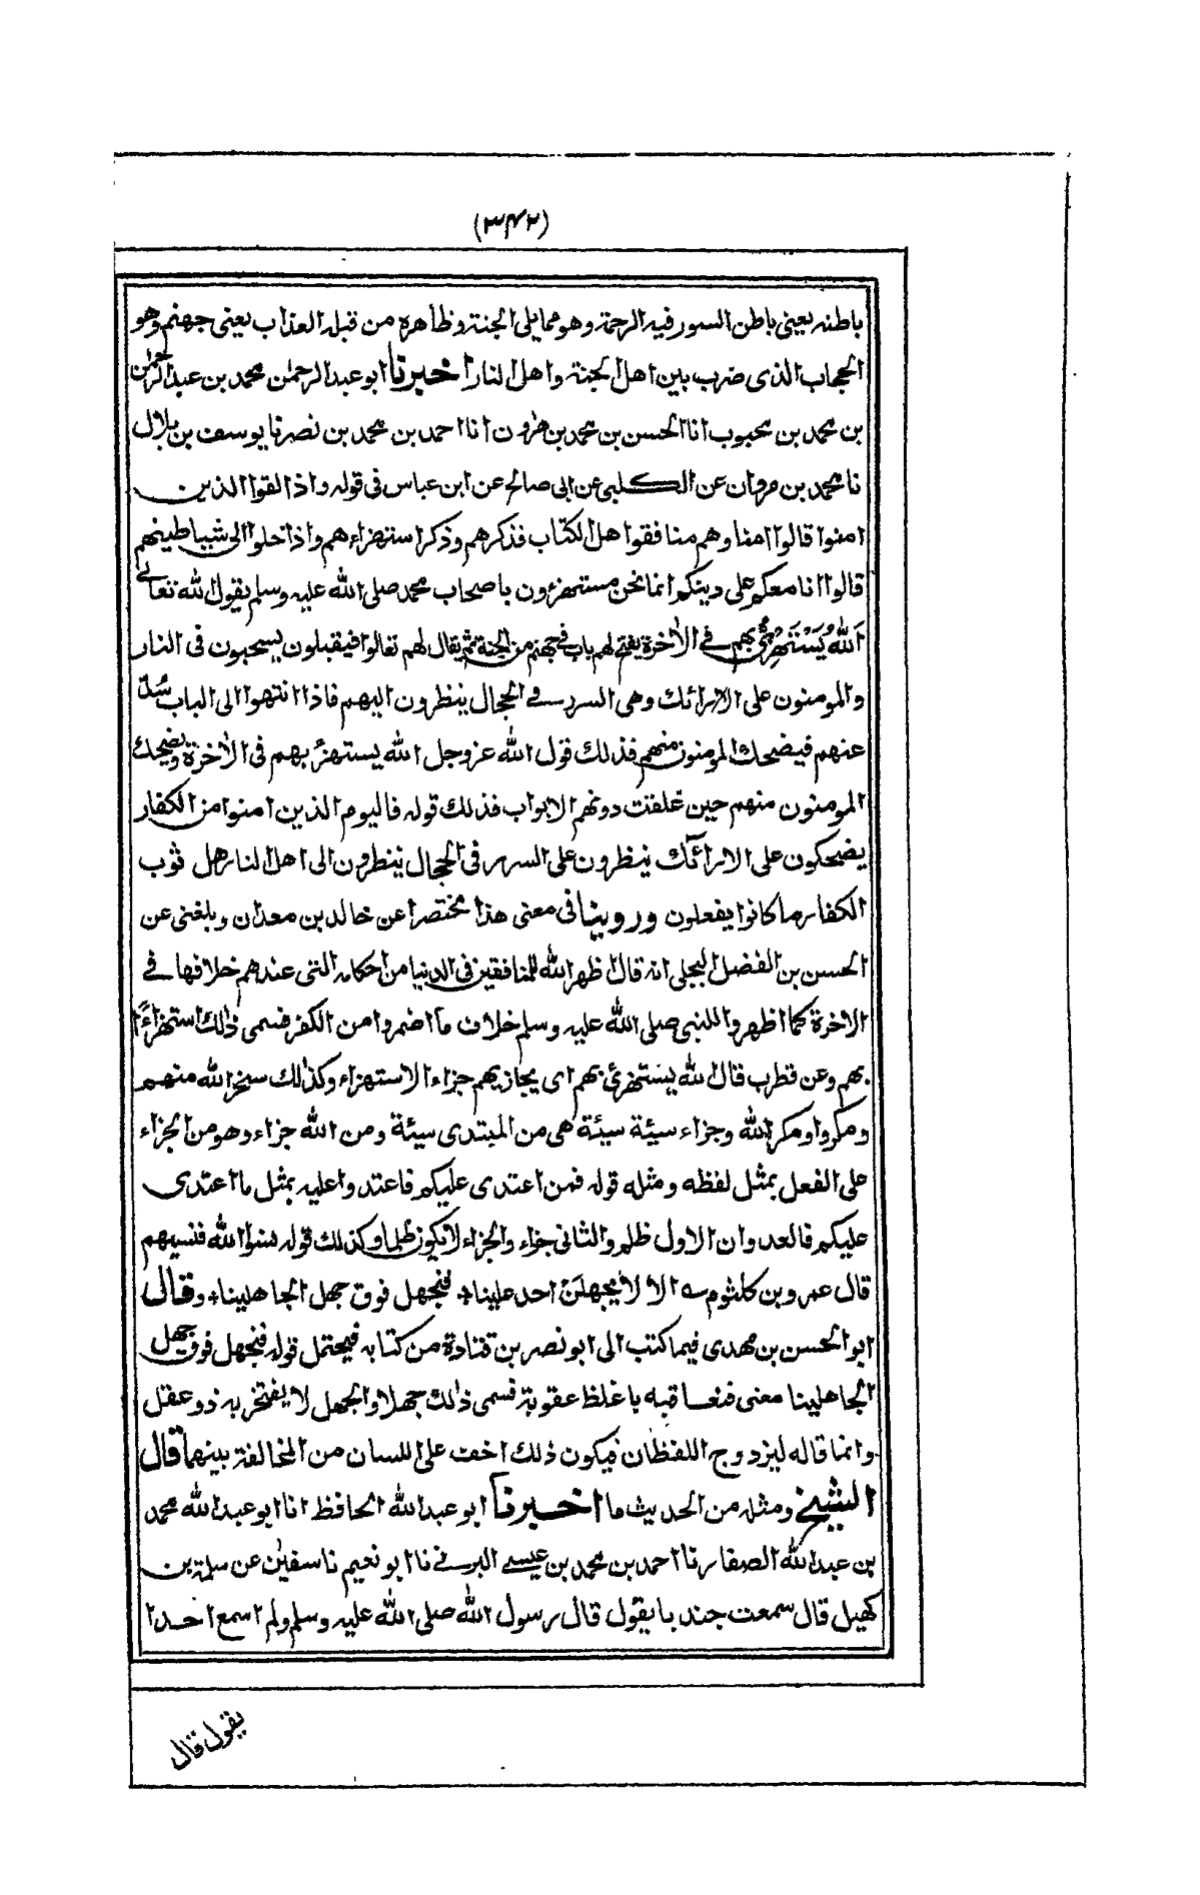 (۳۴۲)
باطنه يعنى باطن السور فيه الرحمة وهو مما يلى الجنة وظاهره من قبله العذاب يعنى جهنم وهو
الحجاب الذى ضرب بين اهل الجنة واهل النار اخبرنا ابو عبد الرحمٰن محمد بن عبد الرحمٰن
بن محمد بن محبوب انا الحسن بن محمد بن هٰرون انا احمد بن محمد بن نصر نا يوسف بن بلال
نا محمد بن مروان عن الكلبى عن ابى صالح عن ابن عباس فى قوله واذا لقوا الذين
امنوا قالوا امنا وهم منافقوا هل الكتاب فذكرهم وذكر استهزاءهم واذا خلوا الى شياطينهم
قالوا انا معكم على دينكم انما نحن مستهزءون باصحاب محمد صلى الله عليه وسلم يقول الله تعالے
اَللهُ يَسْتَهْزِئُ بهم فے الاٰخرة يفتح لهم باب فے جهنم من الجنة ثم يقال لهم تعالوا فيقبلون يسحبون فى النار
والمومنون على الارائك وهى السرر فے الحجال ينظرون اليهم فاذا انتهوا الى الباب سُدّ
عنهم فيضحك المومنون منهم فذلك قول الله عز وجل الله يستهزئ بهم فى الاٰخرة ويضحك
المومنون منهم حين غلقت دونهم الابواب فذلك قوله فاليوم الذين امنوا من الكفار
يضحكون على الارآئك ينظرون على السرر فى الحجال ينظرون الى اهل النار هل ثوب
الكفار ما كانوا يفعلون وروينا فى معنى هذا مختصرا عن خالد بن معدان وبلغنى عن
الحسن بن الفضل البجلى انه قال اظهر الله للمنافقين فى الدنيا من احكامه التى عندهم خلافها فے
الاخرة كما اظهروا للنبى صلى الله عليه وسلم خلاف ما اضمروا من الكفر فسمى ذٰلك استهزاءً
بهم وعن قطرب قال الله يستهزئ بهم اى يجازيهم جزاء الاستهزاء وكذٰلك سخر الله منهم
ومكروا ومكر الله وجزاء سيئة سيئة هى من المبتدى سيئة ومن الله جزاء وهو من الجزاء
على الفعل بمثل لفظه ومثله قوله فمن اعتدى عليكم فاعتدوا عليه بمثل ما اعتدى
عليكم فالعدوان الاول ظلم والثانى جزاء والجزاء لا يكون ظلما وكذلك قوله نسوا الله فنسيهم
قال عمرو بن كلثوم ؎ الا لا يجهلن احد علينا ٭ فنجهل فوق جهل الجاهلينا ٭ وقال
ابو الحسن بن مهدى فيما كتب الى ابو نصر بن قتادة من كتابه فيحتمل قوله فنجهل فوق جهل
الجاهلينا معنى فنعاقبه باغلظ عقوبة فسمى ذٰلك جهلا والجهل لا يفتخر به ذو عقل
وانما قاله ليزدوج اللفظان فيكون ذلك اخف على اللسان من المخالفة بينهما قال
الشيخ ومثله من الحديث ما اخبرنا ابو عبد الله الحافظ انا ابو عبد الله محمد
بن عبد الله الصفار نا احمد بن محمد بن عيسے البرتے نا ابو نعيم نا سفيٰن عن سلمة بن
كهيل قال سمعت جندبا يقول قال رسول الله صلى الله عليه وسلم ولم اسمع احدا
يقول قال